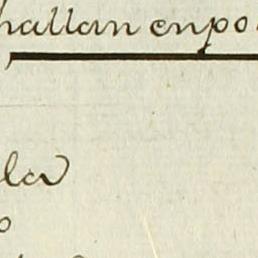 hallan enpo
la
o